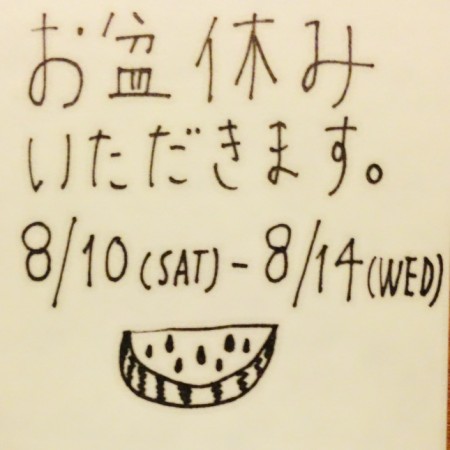 お盆休み
いただきます。
8/10(SAT)-8/14(WED)